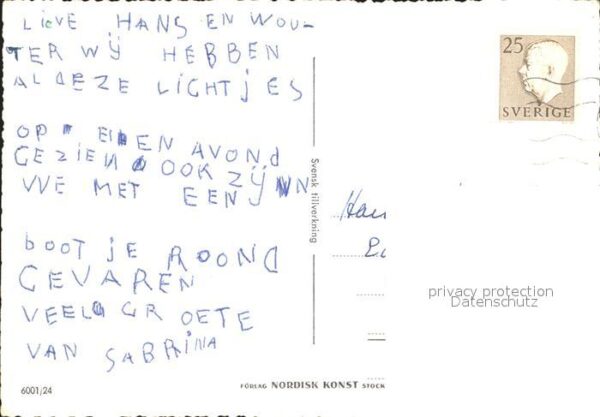 LIEVE HANS EN WOU-
TER WIJ HEBBEN
AL DEZE LICHTJES
OP EEN AVOND
GEZIEN OOK ZIJN
WE MET EEN
bOOT JE ROOND
GEVAREN
VEEL GROETE
VAN SABRINA
25
SVERIGE
Svensk tillverkning
privacy protection
Datenschutz
6001/24
FÖRLAG NORDISK KONST STOCK